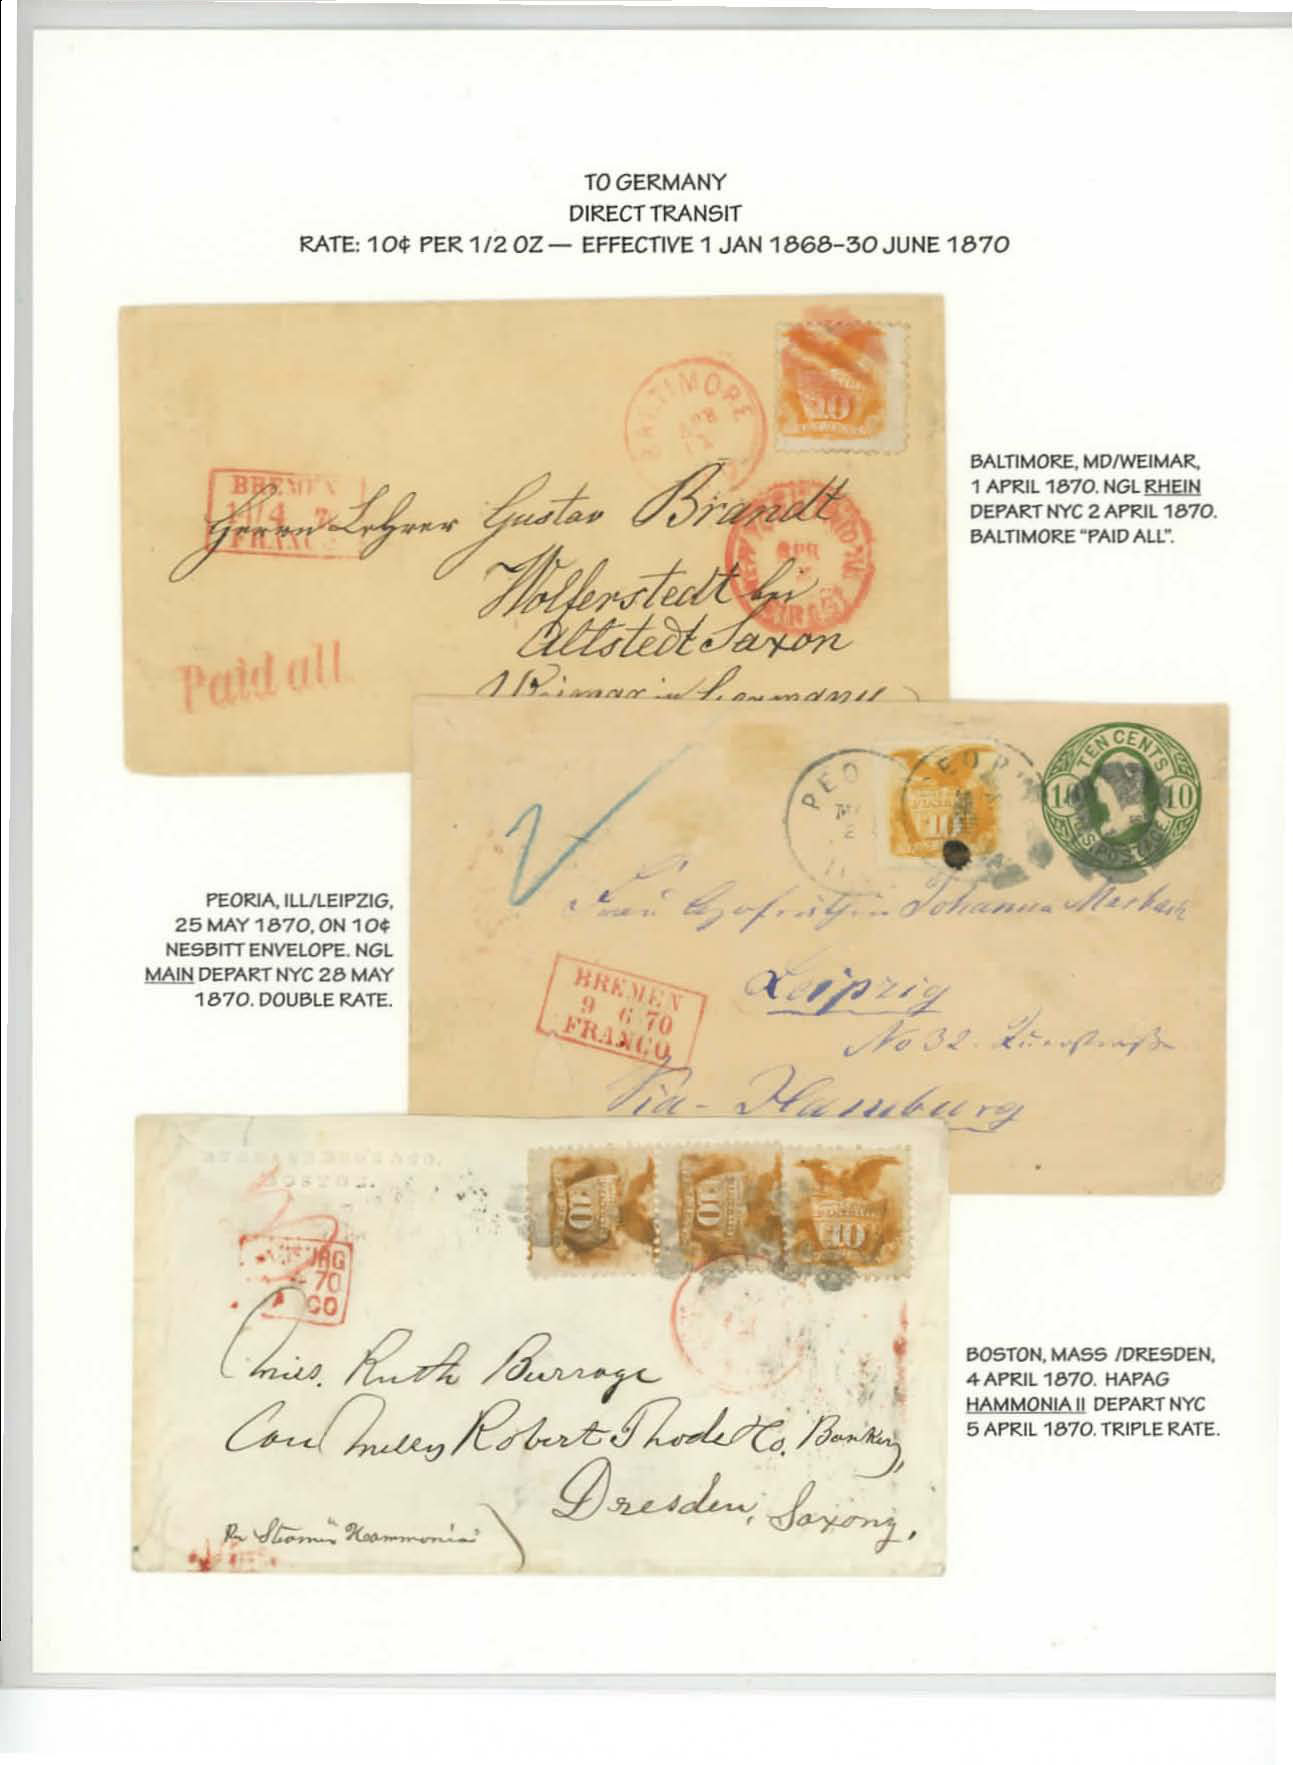 TO GERMANY
DIRECT TRANSIT
RATE: 10¢ PER 1/2 OZ — EFFECTIVE 1 JAN 1868-30 JUNE 1870
BALTIMORE
APR
10
BREMEN
FRANCO
Herrn Lehrer Gustav Brandt
Wolferstedt bei
Altstedt Saxon
Weimar in Germany
APR
Paid all
BALTIMORE, MD/WEIMAR,
1 APRIL 1870. NGL RHEIN
DEPART NYC 2 APRIL 1870.
BALTIMORE "PAID ALL".
PEO
10
TEN CENTS
10 10
US POSTAGE
Frau Johanna
Leipzig
No 32.
Via - Hamburg
BREMEN
9 6 70
FRANCO
PEORIA, ILL/LEIPZIG,
25 MAY 1870, ON 10¢
NESBITT ENVELOPE. NGL
MAIN DEPART NYC 28 MAY
1870. DOUBLE RATE.
BOSTON.
10 10 10
70
CO
Miss. Ruth Burrage
Care Robert Thode & Co. Bankers,
Dresden, Saxony,
Per Steamer "Hammonia"
BOSTON, MASS /DRESDEN,
4 APRIL 1870. HAPAG
HAMMONIA II DEPART NYC
5 APRIL 1870. TRIPLE RATE.